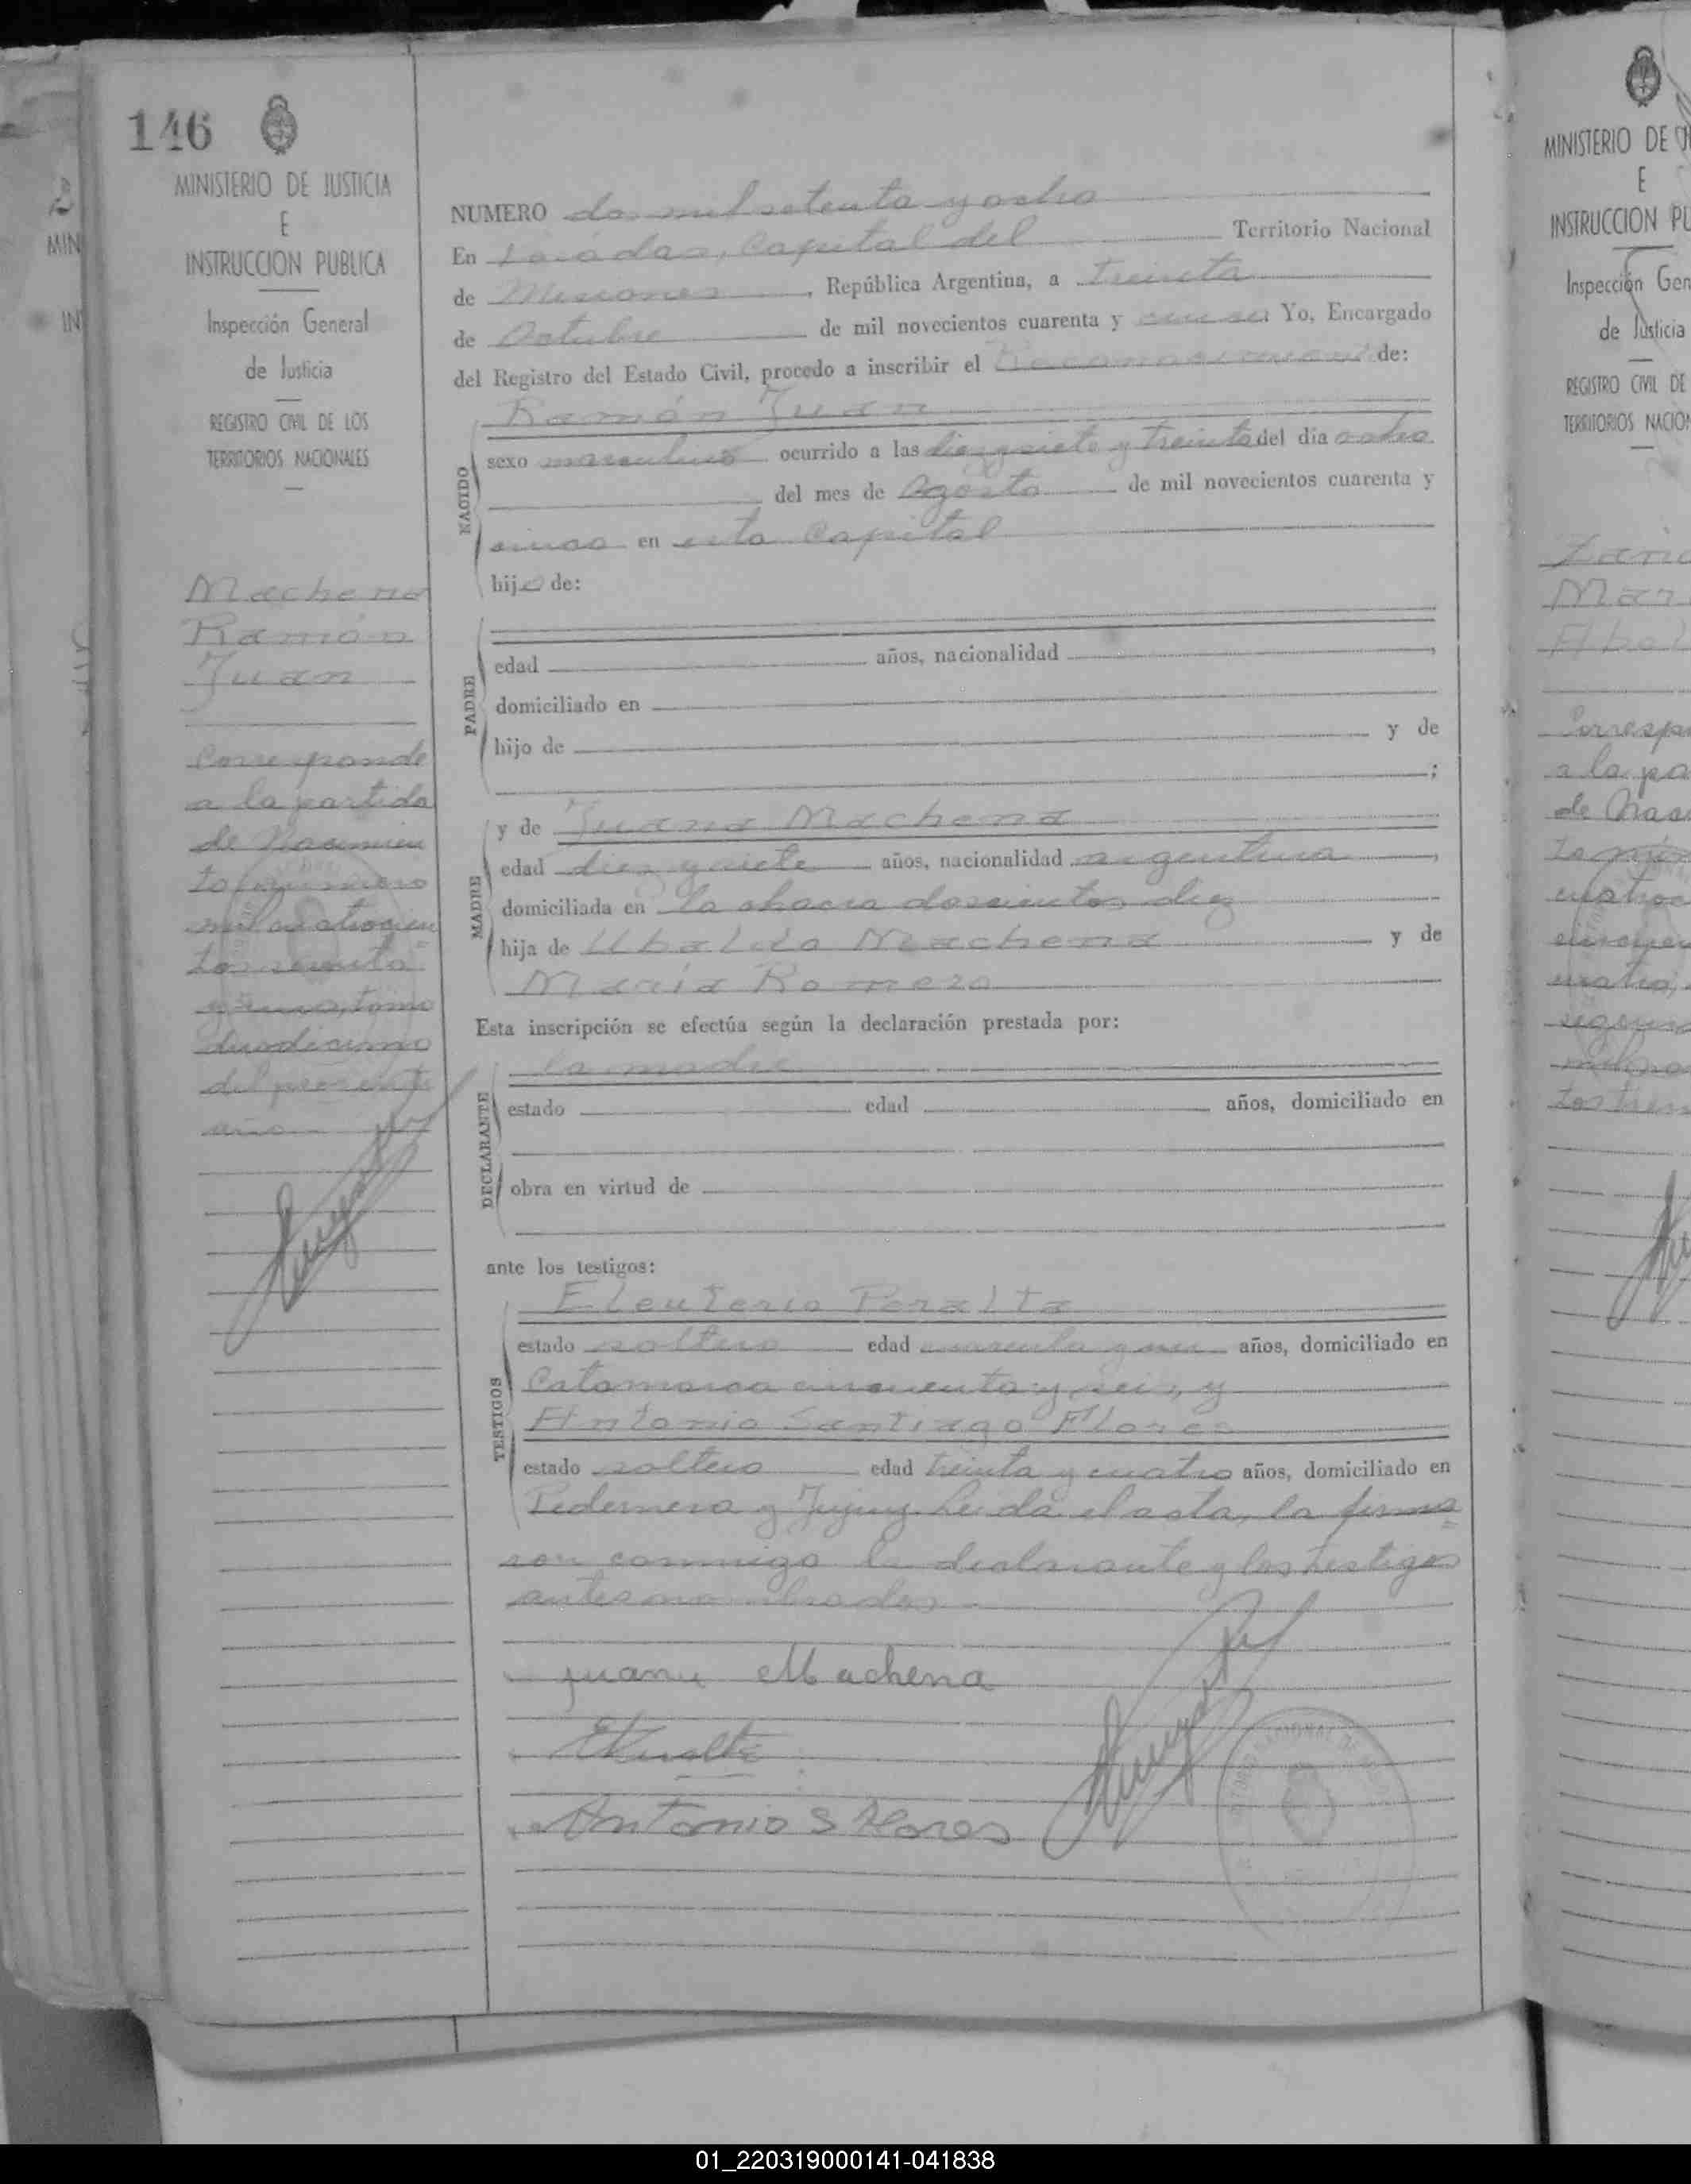 146
MINISTERIO DE JUSTICIA
E
INSTRUCCION PUBLICA
Inspección General
de Justicia
REGISTRO CIVIL DE LOS
TERRITORIOS NACIONALES
Machena
Ramón
Juan
Corresponde
a la partida
de Nacimien
to número
mil cuatrocien
tos
y uno, tomo
duodécimo
del presente
año
NUMERO dos mil setenta y ocho
En Posadas, Capital del Territorio Nacional
de Misiones, República Argentina, a treinta
de Octubre de mil novecientos cuarenta y cinco. Yo, Encargado
del Registro del Estado Civil, procedo a inscribir el Reconocimiento de:
Ramón Juan
NACIDO
sexo masculino ocurrido a las diez y siete y treinta del día ocho
del mes de Agosto de mil novecientos cuarenta y
cinco en esta Capital
hijo de:
PADRE
edad años, nacionalidad ,
domiciliado en
hijo de y de
;
MADRE
y de Juana Machena
edad diez y siete años, nacionalidad argentina ,
domiciliada en la chacra doscientos diez
hija de Ubaldo Machena y de
María Romero
Esta inscripción se efectúa según la declaración prestada por:
la madre
DECLARANTE
estado edad años, domiciliado en
obra en virtud de
ante los testigos:
Eleuterio Peralta
TESTIGOS
estado soltero edad cuarenta y años, domiciliado en
Catamarca cincuenta y seis, y
Antonio Santiago Flores
estado soltero edad treinta y cuatro años, domiciliado en
Pedernera y Jujuy. Leída el acta, la firma=
ron conmigo la declarante y los testigos
antes nombrados.
Juana Machena
EPeralta
Antonio S Flores
MINISTERIO DE JU
E
INSTRUCCION PU
Inspección Gen
de Justicia
REGISTRO CIVIL DE
TERRITORIOS NACION
Mar
Abel
Corresp
a la pa
de Nac
01_220319000141-041838